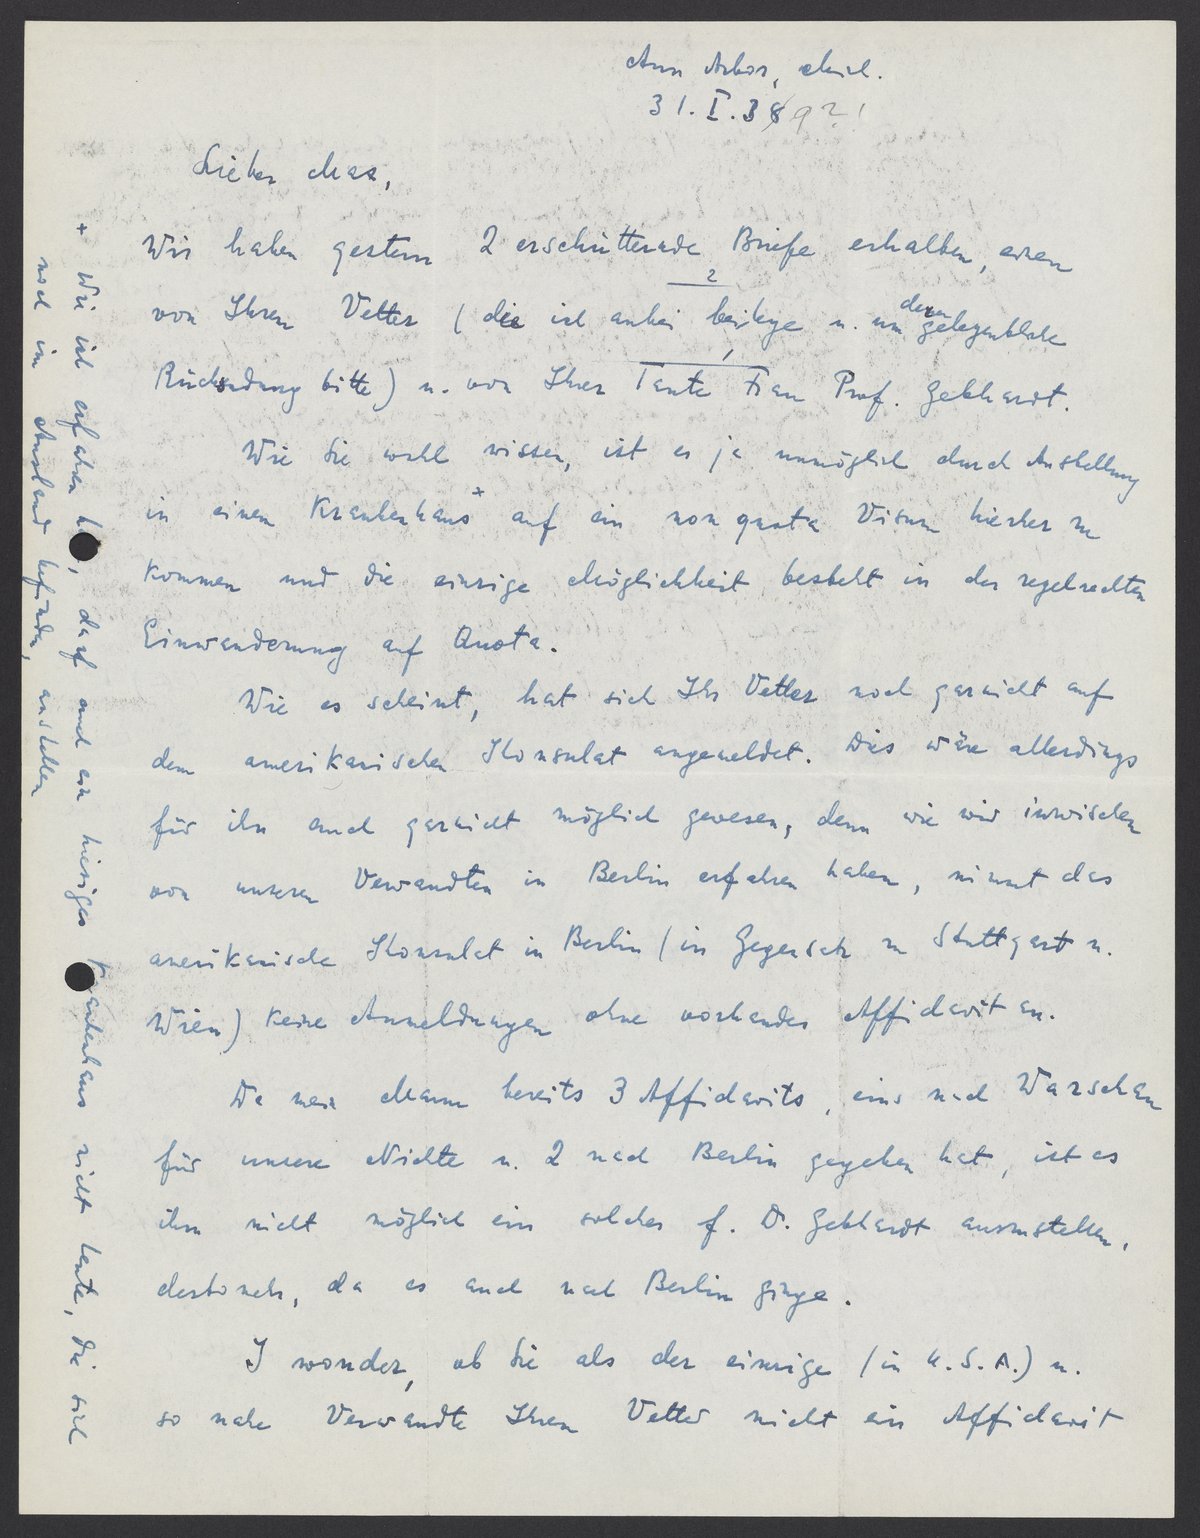 Ann Arbor, Mich.
31. I. 38 9?!
Lieber Max,
Wir haben gestern 2 erschütternde Briefe erhalten, einen
von Ihrem Vetter (die ich anbei beilege u. um deren gelegentliche
Rücksendung bitte) u. von Ihrer Tante Frau Prof. Gebhardt.
Wie Sie wohl wissen, ist es ja unmöglich durch Anstellung
in einem Krankenhaus + auf ein non quota Visum hierher zu
kommen und die einzige Möglichkeit besteht in der regelrechten
Einwanderung auf Quota.
Wie es scheint, hat sich Ihr Vetter noch garnicht auf
dem amerikanischen Konsulat angemeldet. Dies wäre allerdings
für ihn auch garnicht möglich gewesen, denn wie wir inzwischen
von unseren Verwandten in Berlin erfahren haben, nimmt das
amerikanische Konsulat in Berlin (im Gegensatz zu Stuttgart u.
Wien) keine Anmeldungen ohne vorhandes Affidavit an.
Da mein Mann bereits 3 Affidavits, eins nach Warschau
für unsere Nichte u. 2 nach Berlin gegeben hat, ist es
ihm nicht möglich ein solches f. D. Gebhardt auszustellen,
destomehr, da es auch nach Berlin ginge.
I wonder, ob Sie als der einzige (in U.S.A.) u.
so nahe Verwandte Ihrem Vetter nicht ein Affidavit
+ Wie ich erfahren h, darf auch ein hiesiges Krankenhaus nicht Leute, die sich
noch im Ausland befinden, anstellen